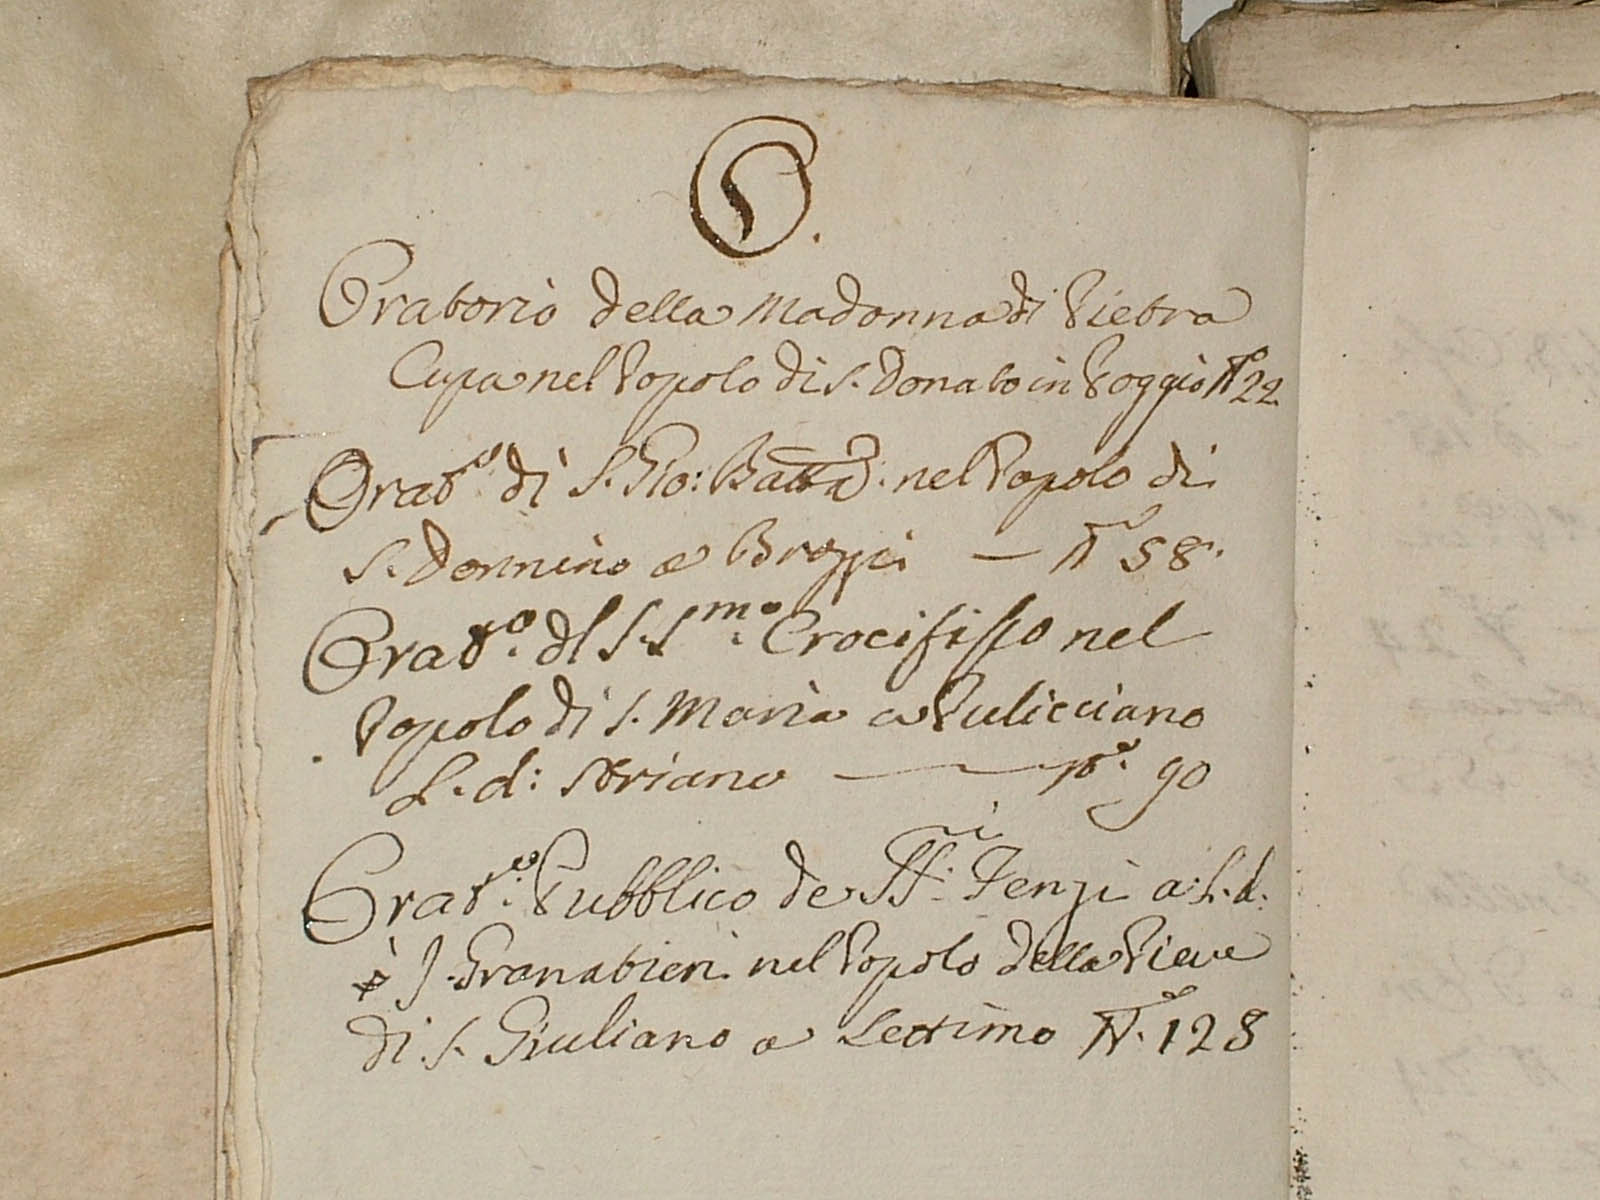 O.
Oratorio della Madonna di Pietra
Cupa nel Popolo di S. Donato in Poggio Nº 22
Oratº. di S. Gio: Batta. nel Popolo di
S. Donnino a Brozzi — Nº 58.
Oratº. dl S.Smº. Crocifisso nel
Popolo di S. Maria a Pulicciano
L. d: Striano — Nº. 90
Oratº. Pubblico de SSi. Tenzi a L. d.
è J. Granatieri nel Popolo della Pieve
di S. Giuliano a Settimo Nº. 128